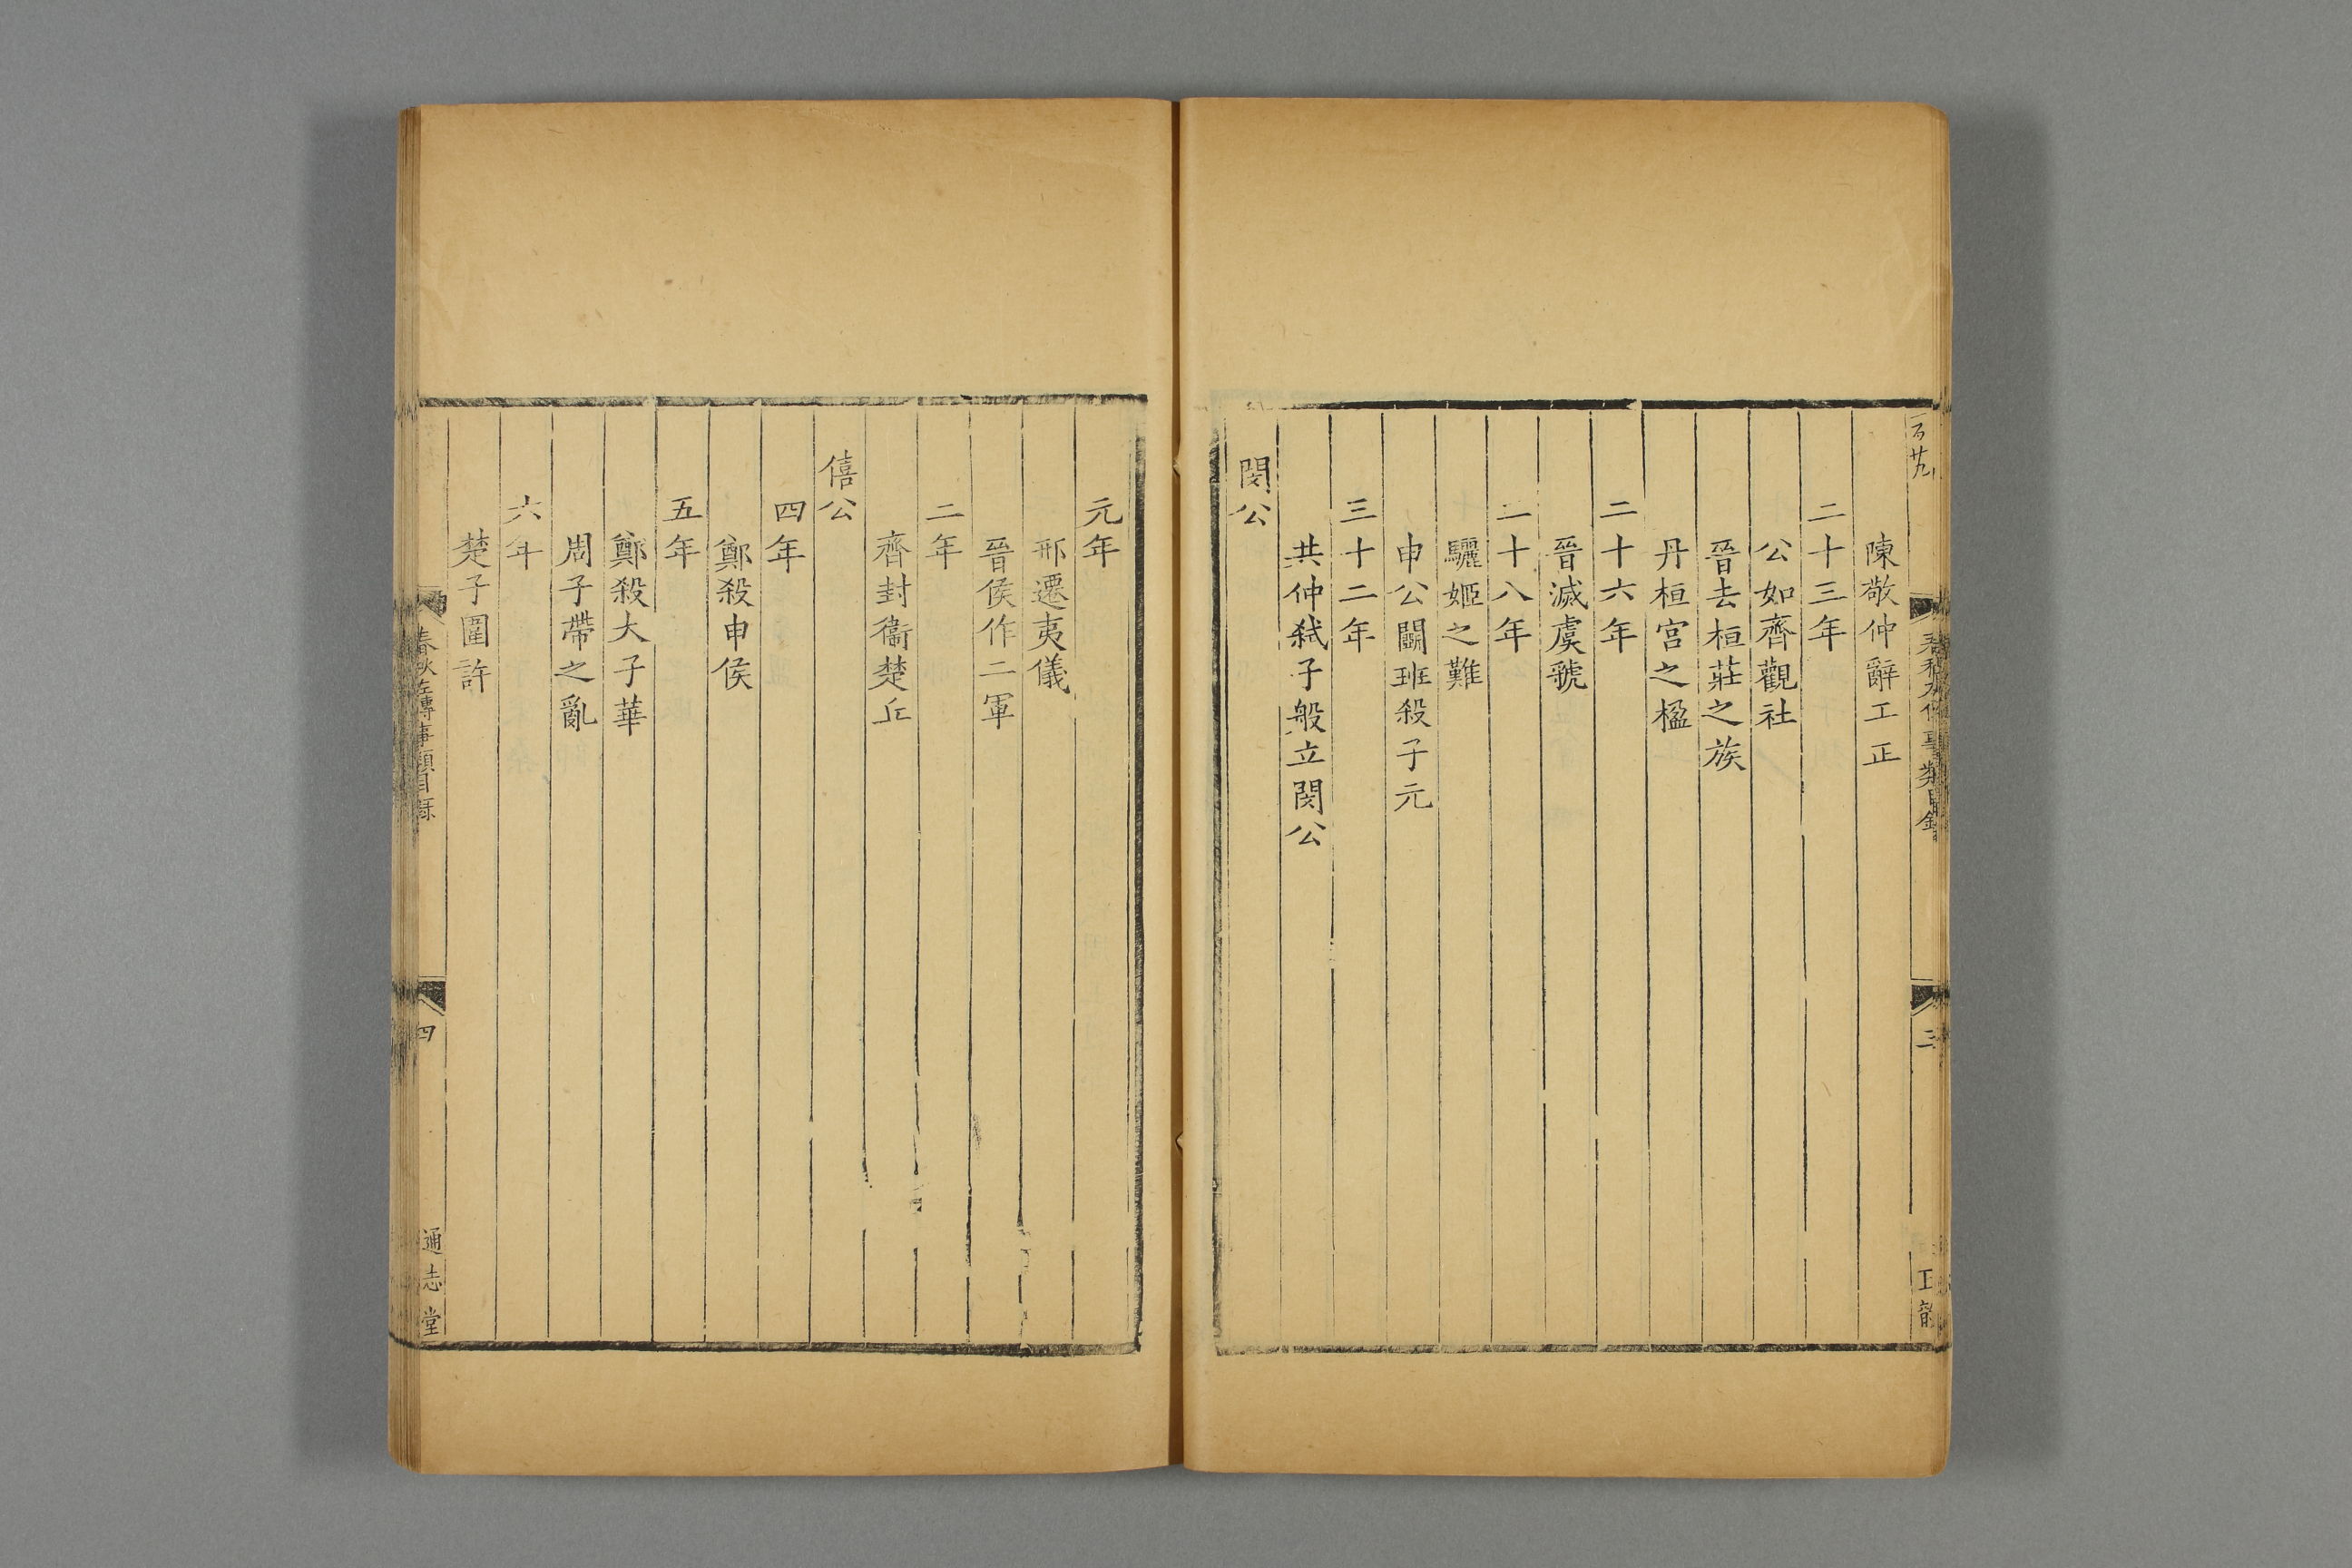 陳敬仲辭工正
二十三年
公如齊觀社
晉去桓莊之族
丹桓宮之楹
二十六年
晉滅虞虢
二十八年
驪姬之難
申公鬭班殺子元
三十二年
共仲弒子般立閔公
閔公
元年
邢遷夷儀
晉侯作二軍
二年
齊封衞楚丘
僖公
四年
鄭殺申侯
五年
鄭殺大子華
周子帶之亂
六年
楚子圍許
春秋左傳事類目錄
四
通志堂